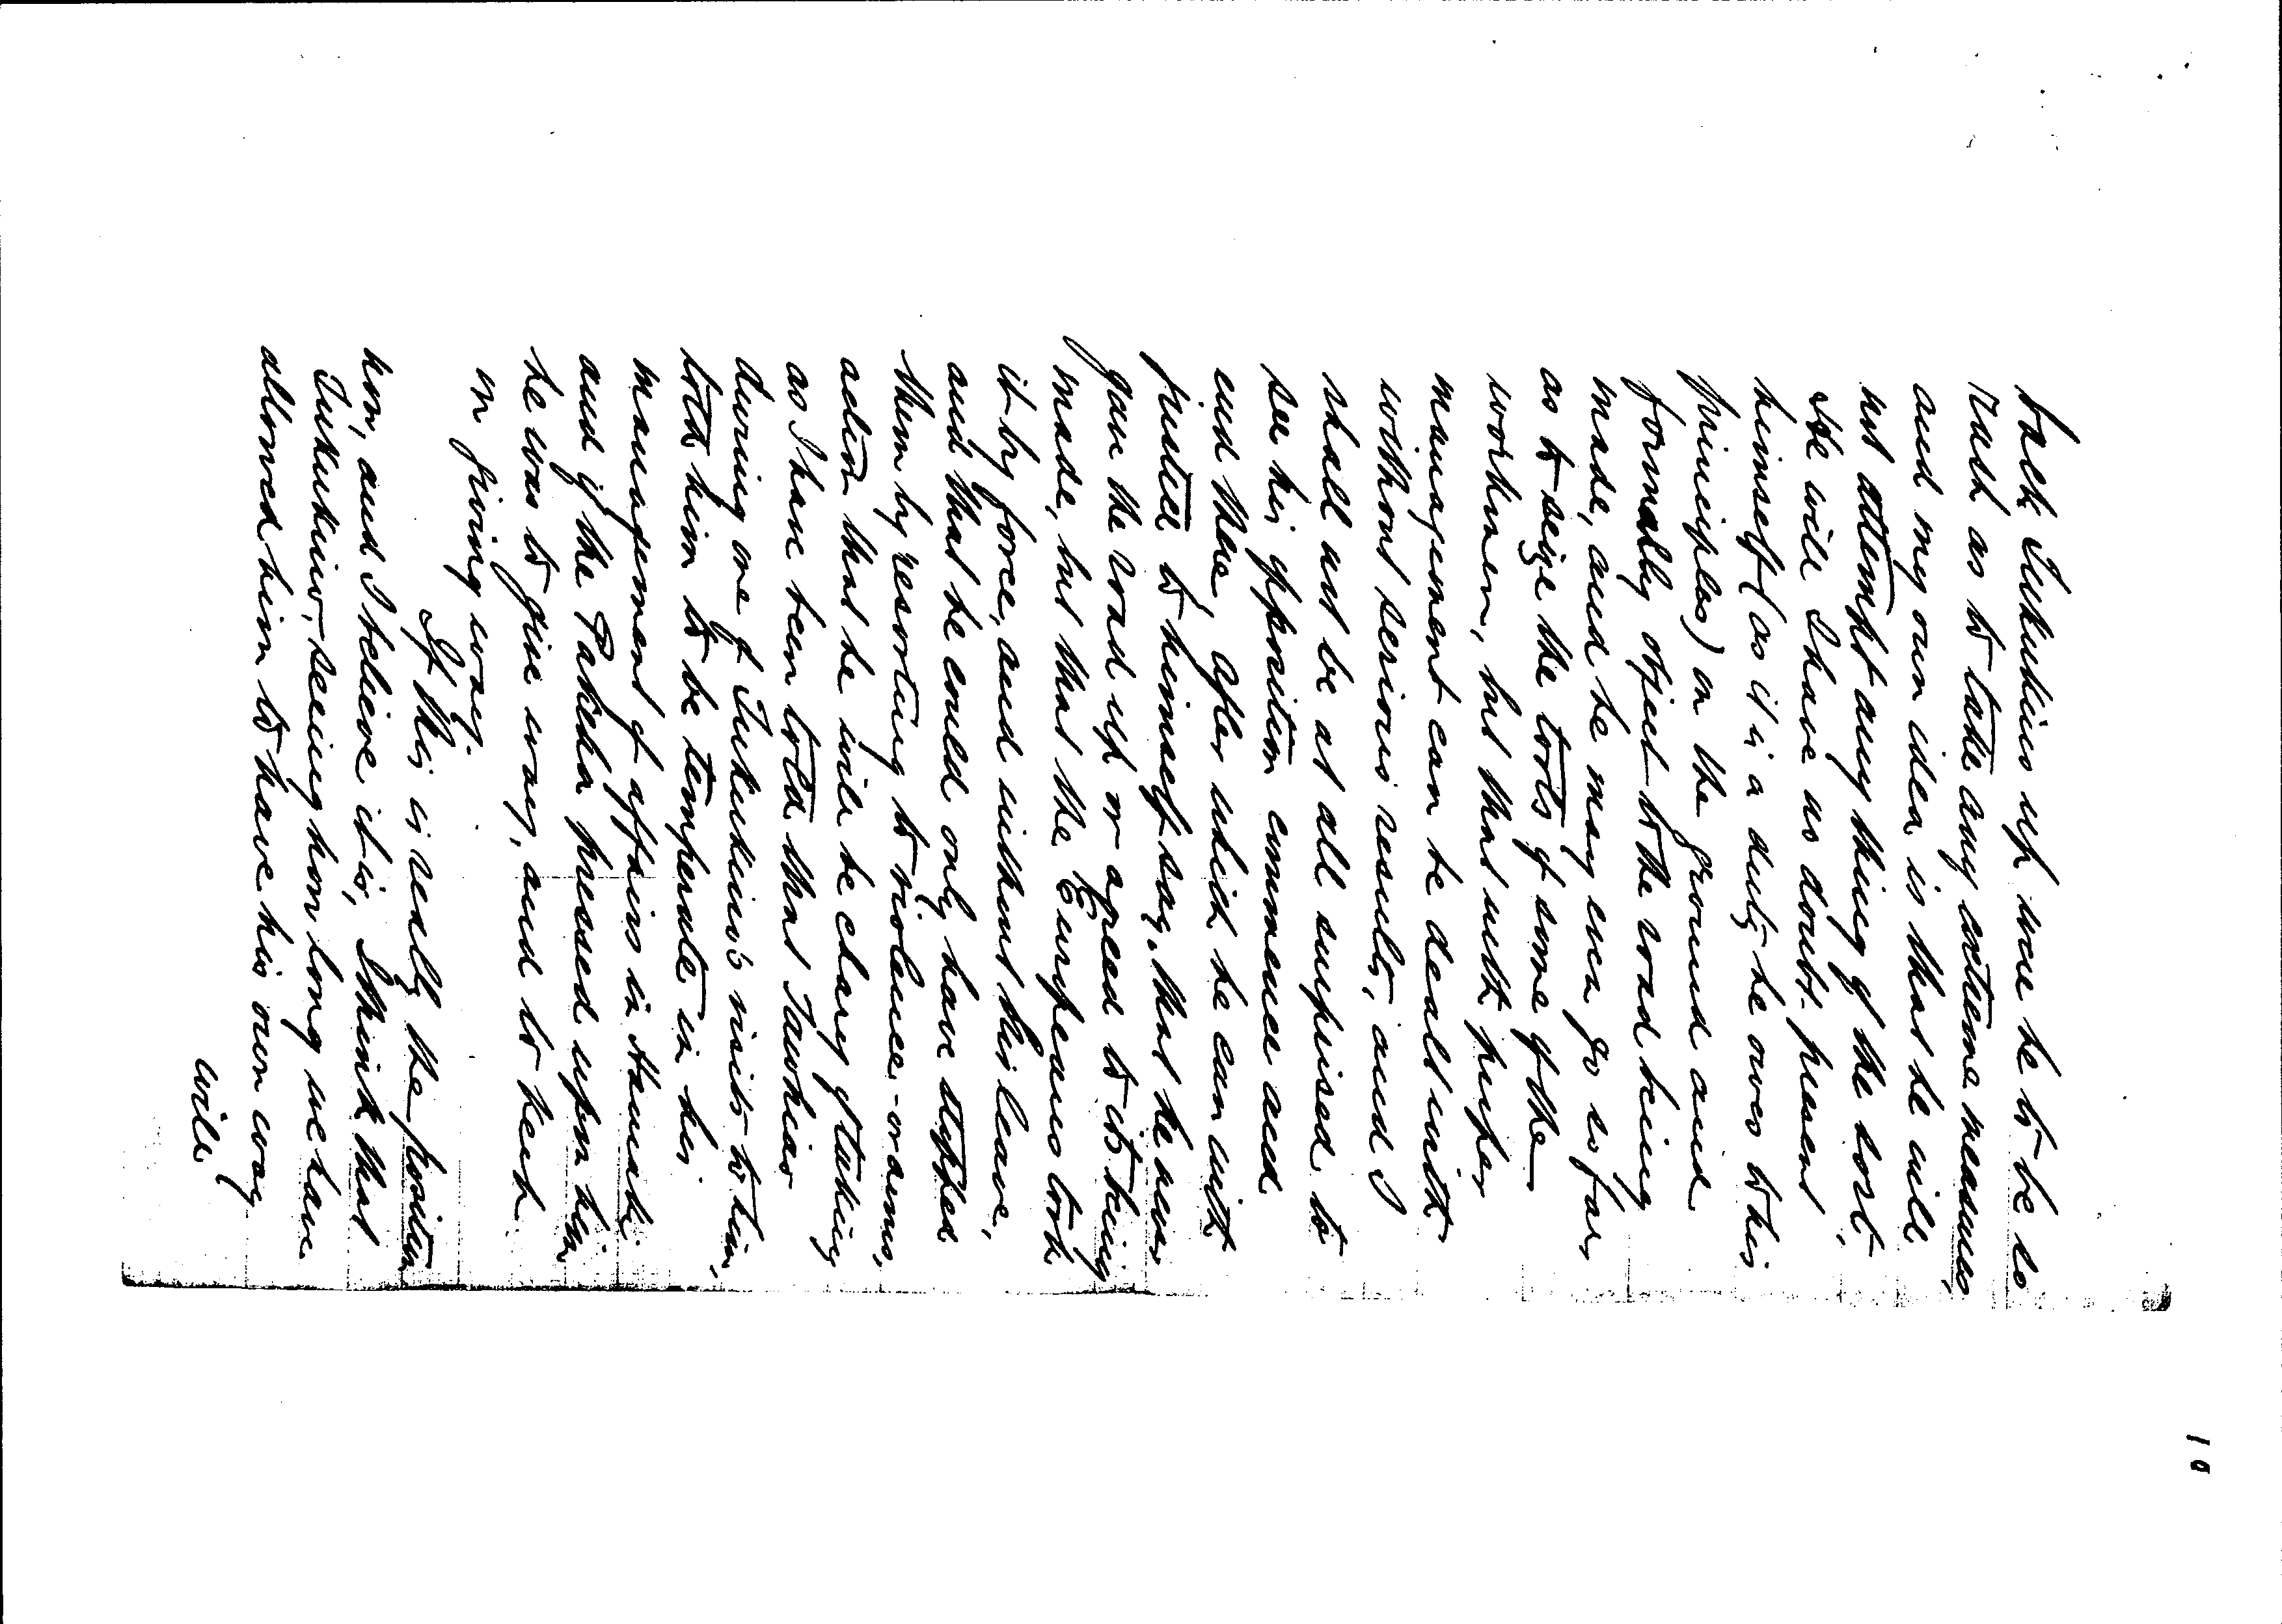 back Tukukino up were he to be so
rash as to take any extreme measures,
and my own idea is that he will
not attempt any thing of the sort.
He will I have no doubt present
himself (as it is a duty he owes to his
principles) on the ground and
formally object to the road being
made, and he may even go so far,
as to seize the tools of some of the
workmen, but that with proper
management can be dealt with
without serious results, and I
shall not be at all surprised to
see his opposition commence and
end there, after which he can with
justice to himself say, that he never
gave the road up or agreed to its being
made, but that the Europeans took
it by force, and without his leave,
and that he could only have stopped
them by resorting to violence - or arms,
action that he will be chary of taking
as I have been told that Tawhiao
during one of Tukukino's visits to him,
told him to be temperate in his
management of affairs in Hauraki
and if the Pakeha pressed upon him
he was to give way, and to keep
on giving way.
If this is really the position
now, and I believe it is, I think that
Tukukino, seeing how long we have
allowed him to have his own way
will
10